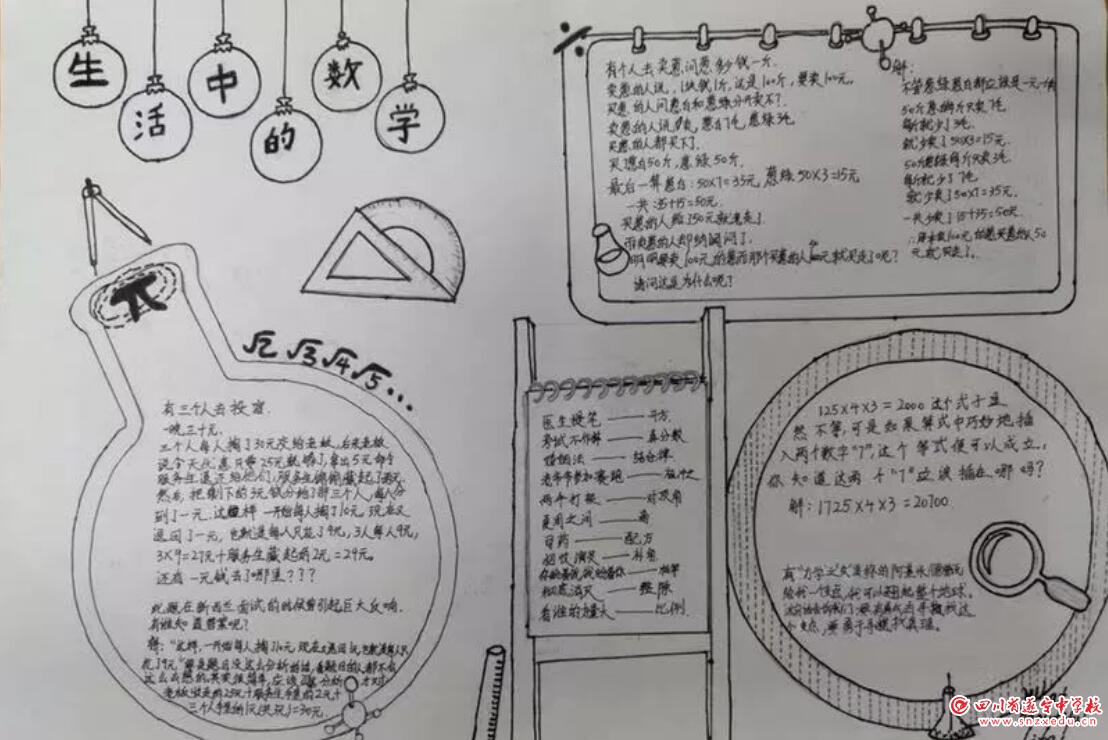 生活中的数学
有个人去卖葱,问葱多少钱一斤.
卖葱的人说,1块钱1斤,这是100斤,要卖100元,
买葱的人问葱白和葱绿分开卖不?
卖葱的人说,卖,葱白7毛,葱绿3毛
买葱的人都买下了.
买葱白50斤,葱绿50斤.
最后一算葱白:50×7=35元,葱绿50×3=15元
一共:35+15=50元.
买葱的人给了50元就走了
而卖葱的人却纳闷了.
明明要卖100元的葱而那个买葱的人 元就买走了呢?
请问这是为什么呢?
解:
不管葱绿葱白都应该是一元一斤
50斤葱 斤只卖7毛
每斤就少了3毛.
就少卖了50×3=15元.
50斤葱绿每斤只卖3毛
每斤就少了7毛
就少卖了50×7=35元.
一共少卖了15+35=50元.
∴ 卖100元的葱买葱的人50
元就买走了。
π
√2 √3 √4 √5 ...
有三个人去投宿.
一晚三十元.
三个人每人掏了10元凑给老板,后来老板
说今天优惠只要25元就够了,拿出5元命令
服务生退还给他们,服务生偷偷藏起了2元
然后,把剩下的3元钱分给了那三个人,每人分
到了一元.这样 一开始每人掏了10元 现在又
退回了一元,也就是每人只花了9元,3人每人9元,
3×9=27元+服务生藏起的2元=29元。
还有一元钱去了哪里???
此题在新西兰面试的时候曾引起巨大反响.
有谁知道答案呢?
解:“这样,一开始每人掏了10元 现在又退回1元,也就是每人只
花了9元”
这么去想的,其实很简单,应该 分析 才对
老板收走的25元+服务生手里的2元+
三个人手里的1元(共3元)=30元.
医生提笔——开方
考试不作弊——真分数
婚姻法——结合律
老爷爷参加赛跑——
两个打 ——对顶角
夏周之间——商
司药——配方
招收演员——补角
你的爸我我的爸你——相等
彻底消灭——整除
看谁的力量大——比例
125×4×3=2000这个式子显
然不等,可是如果算式中巧妙地插
入两个数字“7”,这个等式便可以成立,
你知道这两个“7”应该插在哪吗?
解:1725×4×3=20700
有“力学之父”美称的阿基米德
给我一个支点,我可以 起整个地球。
这句话告诉我们:要有勇气去寻找这
个支点,要勇于寻找真理。
四川省遂宁中学校
www.snzxedu.cn